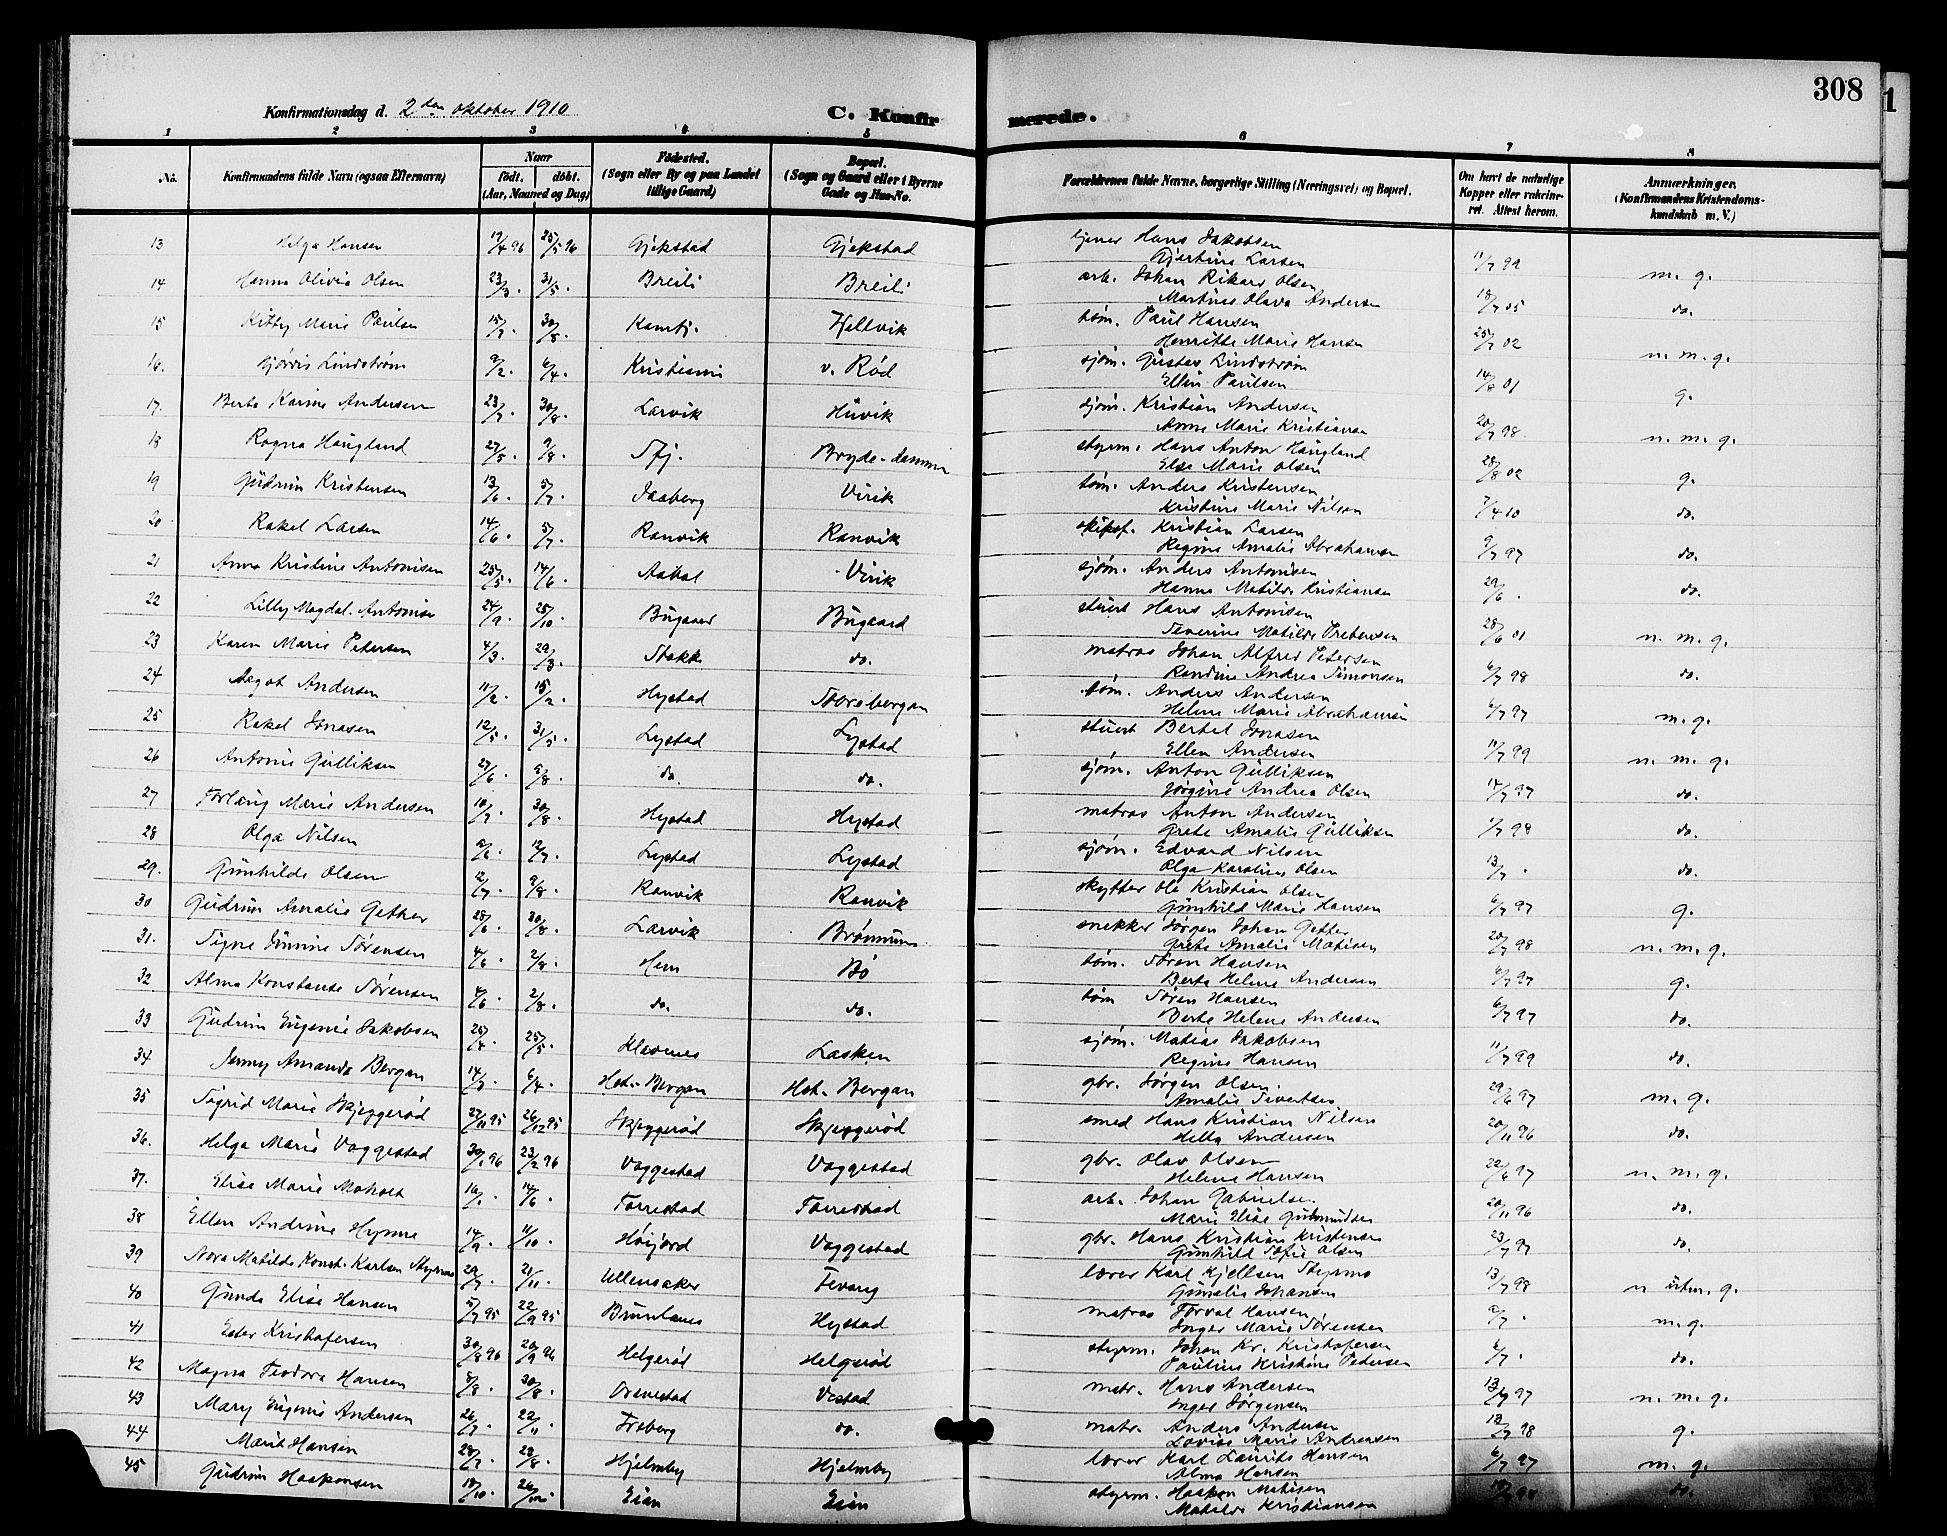 308
Konfirmationsdag d. 2den oktober 1910
C. Konfirmerede.
1 2 3 4 5 6 7 8
No. Konfirmandens fulde Navn (ogsaa Efternavn) Naar født. døbt. (Aar, Maaned og Dag) Fødested. (Sogn eller By og paa Landet tillige Gaard) Bopæl. (Sogn og Gaard eller i Byerne Gade og Hus-No. Forældrenes fulde Navne, borgerlige Stilling (Næringsvei) og Bopæl. Om havt de naturlige Kopper eller vakcineret. Attest herom. Anmærkninger. (Konfirmandens Kristendomskundskab m. V.)
13 Helga Hansen 19/4 96 25/5 96 Gjekstad Gjekstad tjener Hans Jakobsen
Gjertine Larsen 11/7 99 m. g.
14 Hanna Olivia Olsen 23/3. 31/5. Breili Breili arb. Johan Rikard Olsen
Martine Olava Andersen 18/7 05 do.
15 Kitty Marie Paulsen 15/7. 30/8. Hellvik tøm. Paul Hansen
Henritte Marie Hansen 25/7 02 n. m. g.
16. Lindstrøm 9/2. 6/4. Kristiania v. Rød sjøm. Gustav Lindstrøm
Ellin Paulsen 14/8 01 g.
17. Berta Karine Andersen 23/7. 30/8. Larvik Huvik sjøm. Kristian Andersen
Anne Marie Kristiansen 20/7 98 n. m. g.
18 Ragna Haugland 27/5. 9/8. Sfj. Bryde-dammen styrm. Hans Anton Haugland
Else Marie Olsen 28/8 02 g.
19 Gudrun Kristensen 13/6. 5/7. Skaberg Virik tøm. Anders Kristensen
Kristine Marie Nilsen 7/4 10 do.
20 Rakel Larsen 14/6. 5/7. Ranvik Ranvik skipsf. Kristian Larsen
Regine Amalie Abrahamsen 9/7 97 do.
21 Anna Kristine Antonisen 25/5. 14/6. Virik sjøm. Anders Antonisen
Hanna Matilde Kristiansen 29/6. do.
22 Lilly Magdal. Antonisen 24/9. 25/10. Bugaard Bugaard stuert Hans Antonisen
Severine Matilde Prebensen 28/6 01 n. m. g.
23 Karen Marie Petersen 4/3. 29/3. Stokke do. matros Johan Alfred Petersen
Randine Andrea Simonsen 6/7 98 do.
24 Aagot Andersen 11/2. 15/2. Hystad Storebergan tøm. Anders Andersen
Helene Marie Abrahamsen 6/7 97 m. g.
25 Rakel Jonasen 12/5. 31/5. Lystad Lystad stuert Bertel Jonasen
Ellen Andersen 11/7 99 n. m. g.
26 Antonie Gulliksen 27/6. 9/8. do. do. sjøm. Anton Gulliksen
Jørgine Andrea Olsen 14/7 97 do.
27 Torlaug Marie Andersen 10/7. 30/8. Hystad Hystad matros Anton Andersen
Grete Amalie Gulliksen 1/7 98 do.
28 Olga Nilsen 9/6. 12/7. Lystad Lystad sjøm. Edvard Nilsen
Olga Karoline Olsen 13/7. do.
29. Gunhilde Olsen 12/7. 9/8. Ranvik Ranvik skytter Ole Kristian Olsen
Gunhild Marie Hansen 6/7 97 g.
30 Gudrun Amalie Gether 28/6. 30/8. Larvik snekker Jørgen Johan Gether
Grete Amalie Matisen 20/7 98 n. m. g.
31. Signe Sørensen 4/6. 2/8. Hem Bø tøm. Søren Hansen
Berta Helene Andersen 6/7 97 g.
32 Alma Konstanse Sørensen 4/6. 2/8. do. do. tøm Søren Hansen
Berte Helene Andersen 6/7 97 do.
33 Gudrun Eugenie Jakobsen 25/4. 25/5. Klavenes Lasken sjøm. Matias Jakobsen
Regine Hansen 11/7 99 do.
34 Jenny Amanda Bergan 14/3. 6/4. Hst. Bergan Hst. Bergan gbr. Jørgen Olsen.
Amalie Sivertsen 29/6 97 m. g.
35 Sigrid Marie Skjeggerød 27/11 95 26/12 95 Skjeggerød Skjeggerød smed Hans Kristian Nilsen
Andersen 20/11 96 do.
36. Helga Marie Vaggestad 30/1 96 23/2 96 Vaggestad Vaggestad gbr. Olav Olsen
Helene Hansen 22/6 97 n. m. g.
37. Elise Marie Moholt 14/6. Torrestad Torrestad arb. Johan Gabrielsen
Marie Elise Gudmundsen 20/11 96 do.
38 Ellen Andrine Hynne 14/9. 11/10. Høijord Vaggestad gbr. Hans Kristian Kristensen
Gunhild Sofie Olsen 23/7 97 do.
39 Nora Matilde Konst. Karlsen Styrmo 29/7. 21/11. Ullensaker Fevang lærer Karl Kjellsen Styrmo
Gunalia Johansen 13/7 98 n utm. g.
40 Gunda Elise Hansen 5/7 95 22/9 95 Brunlanes Hystad matros Torval Hansen
Inger Marie Sørensen 9/7. m. g.
41 Ester Kristofersen 30/8 96 20/9 96 Helgerød Helgerød styrm. Johan Kr. Kristofersen
Pauline Kristine Pedersen 6/7. do.
42 Magna Teodora Hansen 8/8. 30/8. Vestad matr. Hans Andersen
Inger Jørgensen 13/7 97 n. m. g.
43 Mary Eugenie Andersen 26/7. 22/11. Freberg do. matr. Anders Andersen
Lovise Marie Andreassen 12/7 98 g.
44 Marit Hansen 28/7. 23/8. Hjelmby Hjelmby lærer Karl Laurits Hansen
Alma Hansen 6/7 97 m. g.
45 Gudrun Haakonsen 18/10. Eian Eian styrm. Haakon Matisen
Matilde Kristiansen do.